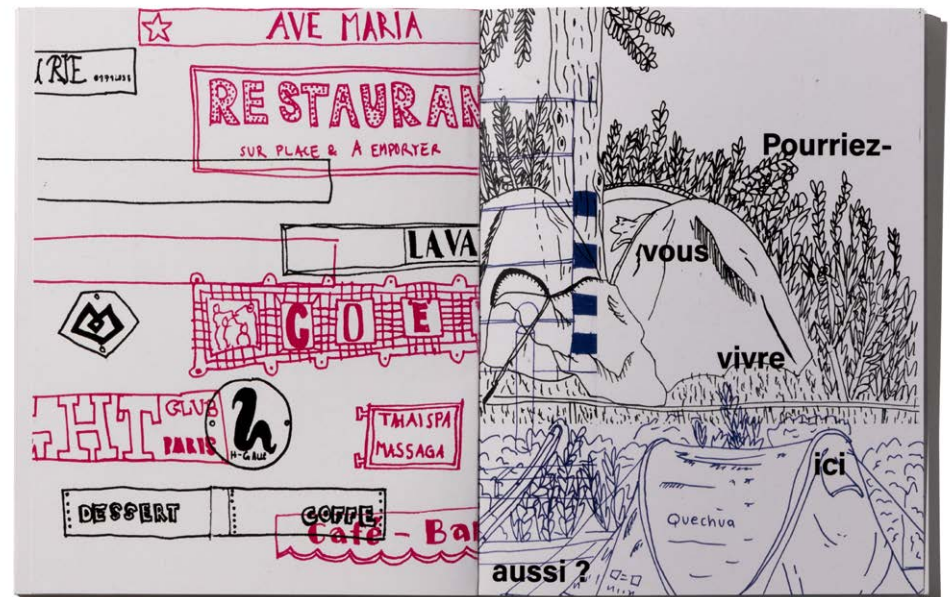 AVE MARIA
RESTAURAN
SUR PLACE & À EMPORTER
LAVA
GOE
GHT
CLUB
PARIS
H-GALLE
THAISPA
MASSAGA
DESSERT
COFFE
Café - Ba
Pourriez-
vous
vivre
ici
aussi ?
Quechua